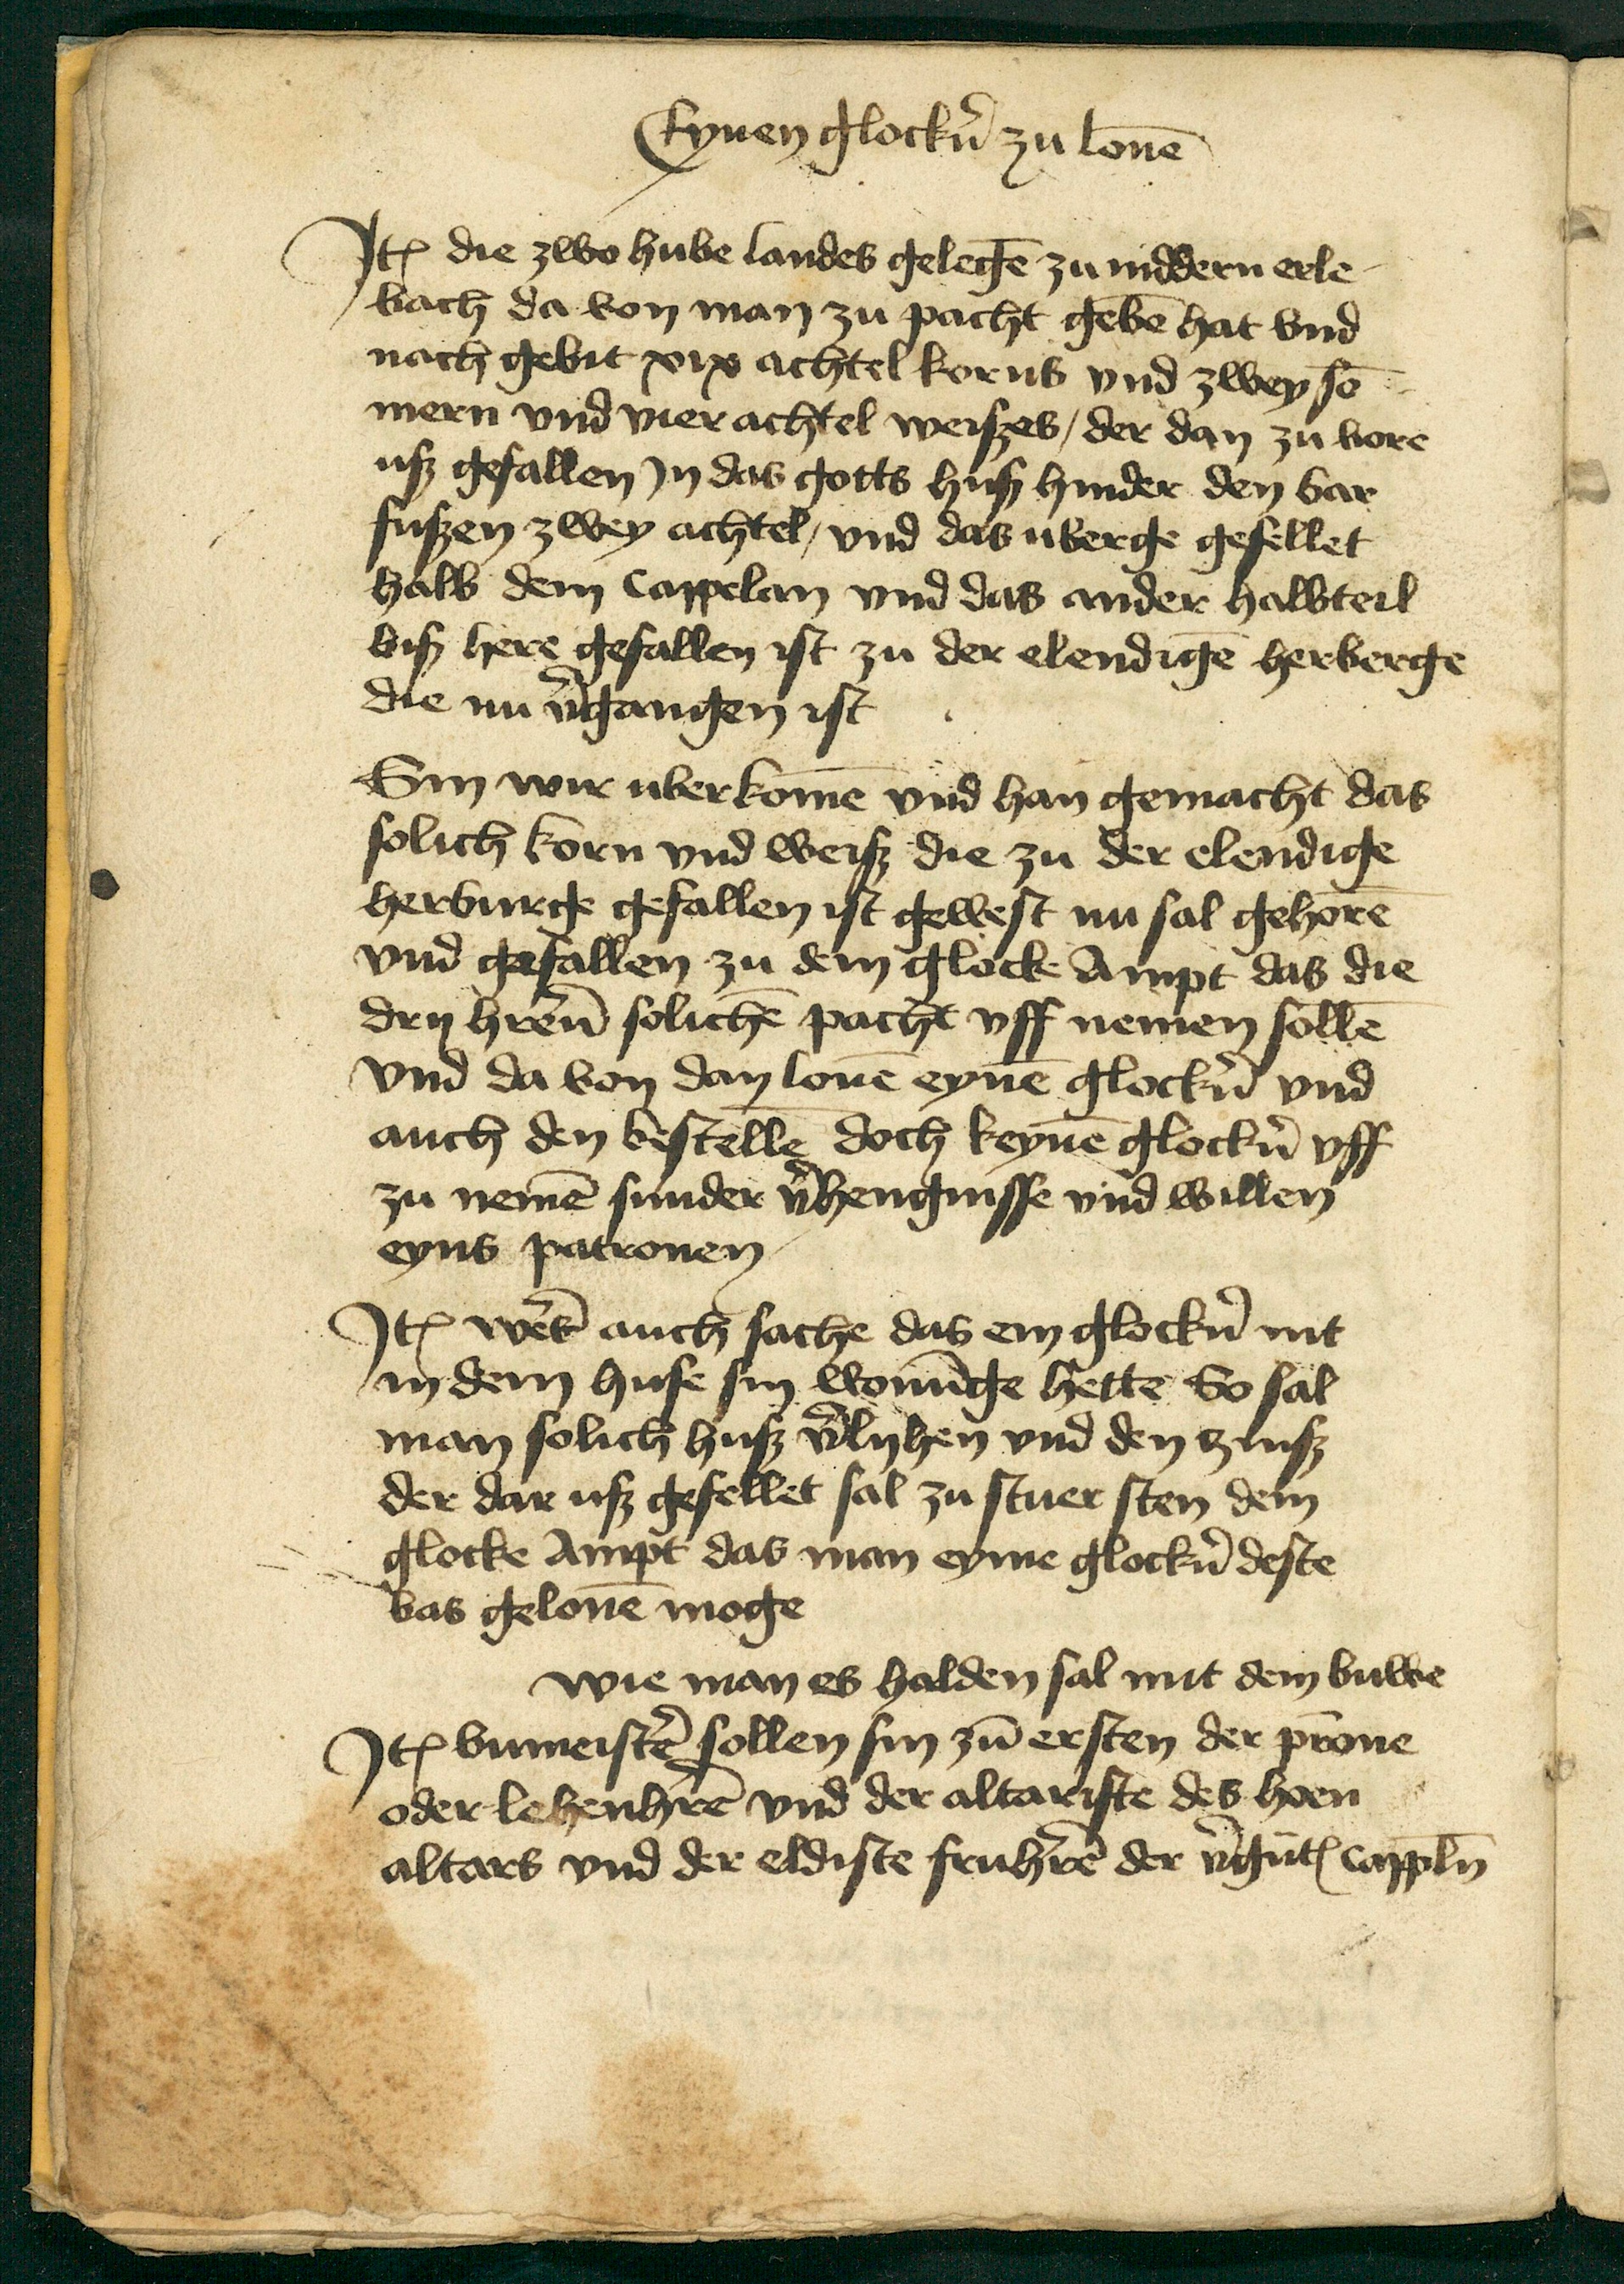 Eynen glockn̄ zu lonē
Itē die zwo hube landes gelegē zu niddern erle
bach da von man zu pacht gebē hat vnd
nach gebit xix achtel korns vnd zwey so̅
mern vnd vier achtel weiszes / der dan zu vore
usz gefallen In das gotts husz hinder den bar
fuszen zwey achtel / vnd das uberge gefellet
halb dem Cappelan vnd das ander halbteil
bisz here gefallen ist zu der elendigē herberge
die nu v̄gangen ist
Sin wir uberkomē vnd han gemacht das
solich korn vnd weisz die zu der elendige
herburge gefallen ist gewest nu sal gehorē
vnd gefallen zu dem glocke Ampt das die
drij hrēn solichē pacht vff nemen sollē
vnd da von dan lonē eynē glockn̄ vnd
auch den bestellē doch keynē glockn̄ vff
zu nemē sunder v̄hengnisse vnd willen
eyns patronen
Itē wer̄ auch sache das ein glockn̄ nit
in dem huse sin wonūge hette So sal
man solich husz v̄lyhen vnd den zinsz
der dar usz gefellet sal zu stuer sten dem
glocke Ampt das man eyme glockn̄ deste
bas gelonē moge
wie man es halden sal mit dem buwe
Itē bumeistē sollen sin zū ersten der pr̄one
oder lehenhrē vnd der altariste des hoen
altars vnd der eldiste fruhrē der v̄gūtē Cappln̄